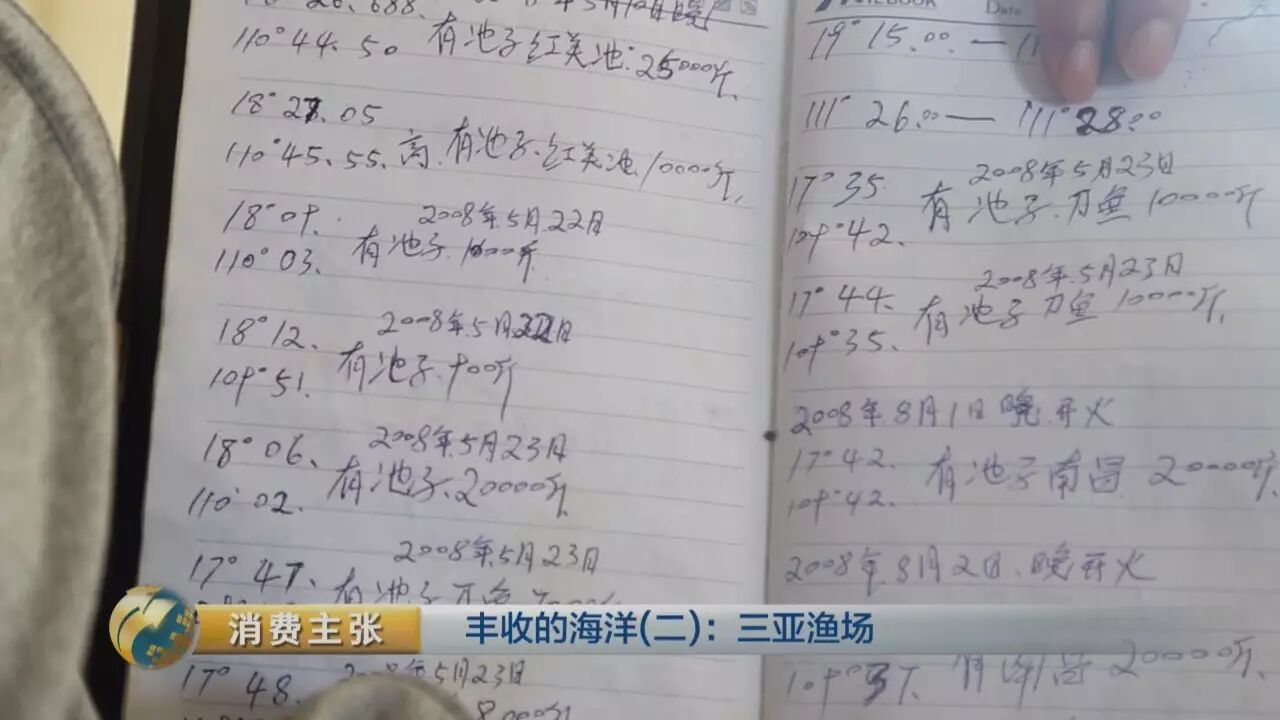 110°44.50 有池子红关池.25000斤.
18°27.05
110°45.55.高.有池子.红关池.10000斤,
18°09. 2008年5月22日
110°03. 有池子.1000斤.
18°12. 2008年5月22日
109°51. 有池子.900斤
18°06、 2008年5月23日
110°02. 有池子.20000斤.
17°47、 2008年5月23日
有池子
17°48. 2008年5月23日
8000斤
NOTEBOOK Date
19°15.00.—
111°26.00—111°28.00
17°35. 2008年5月23日
109°42. 有池子.刀鱼10000斤
17°44. 2008年5月23日
109°35、有池子刀鱼10000斤,
2008年8月1日晚.开火
17°42. 有池子南昌 20000斤.
109°42.
2008年8月2日.晚开火
109°37. 20000斤.
消费主张 丰收的海洋(二)：三亚渔场